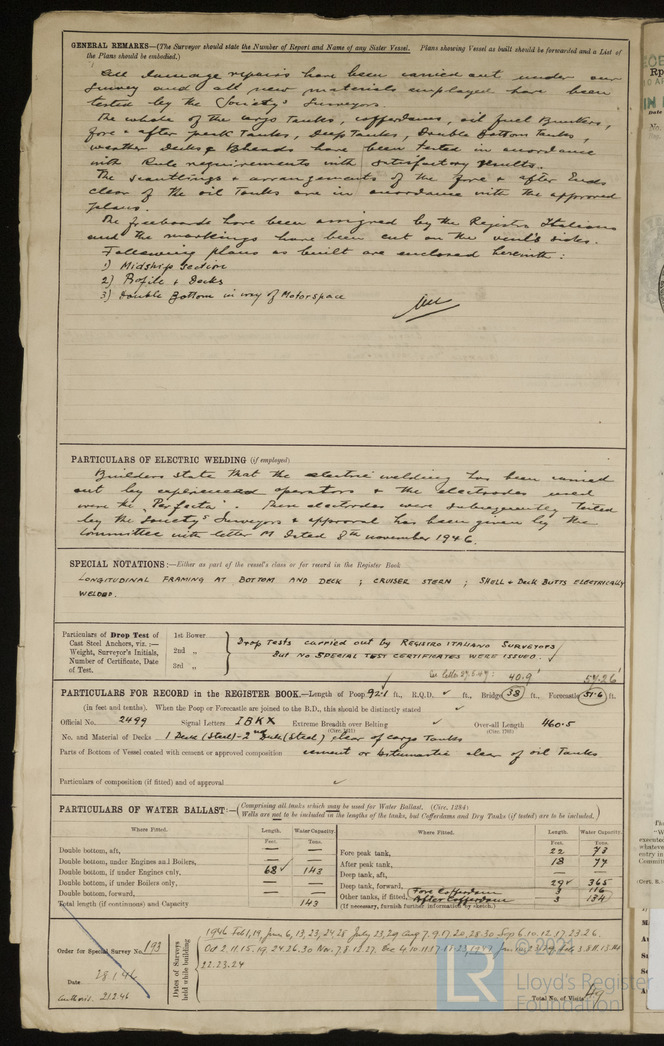 GENERAL REMARKS—(The Surveyor should state the Number of Report and Name of any Sister Vessel. Plans showing Vessel as built should be forwarded and a List of
the Plans should be embodied.)
All damage repairs have been carried out under our
survey and all new materials employed have been
tested by the Society's Surveyors.
The whole of the cargo tanks, cofferdams, oil fuel Bunkers,
fore & after peak Tanks, Deep Tanks, Double Bottom Tanks,
weather Decks & Bheads have been tested in accordance
with Rule requirements with satisfactory results.
The scantlings & arrangements of the fore & after Ends
clear of the oil Tanks are in accordance with the approved
plans.
The freeboards have been assigned by the Registro Italiano
and the markings have been cut on the vessel's sides.
Following plans as built are enclosed herewith:
1) Midship Section
2) Profile & Decks
3) Double Bottom in way of Motorspace
PARTICULARS OF ELECTRIC WELDING (if employed)
Builders state that the electric welding has been carried
out by experienced operators & the electrodes used
were the "Perfecta". These electrodes were subsequently tested
by the Society's Surveyors & approval has been given by the
Committee with letter M dated 8th November 1946.
SPECIAL NOTATIONS:—Either as part of the vessel's class or for record in the Register Book
LONGITUDINAL FRAMING AT BOTTOM AND DECK ; CRUISER STERN ; SHELL & DECK BUTTS ELECTRICALLY
WELDED.
Particulars of Drop Test of
Cast Steel Anchors, viz.:—
Weight, Surveyor's Initials,
Number of Certificate, Date
of Test.
1st Bower
2nd "
3rd "
Drop tests carried out by REGISTRO ITALIANO SURVEYORS
But no SPECIAL TEST CERTIFICATES WERE ISSUED.
40.9' 57.26'
PARTICULARS FOR RECORD in the REGISTER BOOK.—Length of Poop 92.1 ft., R.Q.D. ✓ ft., Bridge 38 ft., Forecastle 51.6 ft.
(in feet and tenths). When the Poop or Forecastle are joined to the B.D., this should be distinctly stated ✓
Official No. 2499 Signal Letters IBKX Extreme Breadth over Belting ✓ Over-all Length 460.5
No. and Material of Decks 1 Deck (Steel) - 2nd Deck (Steel) clear of cargo Tanks
Parts of Bottom of Vessel coated with cement or approved composition cement or bitumastic clear of oil Tanks
Particulars of composition (if fitted) and of approval ✓
PARTICULARS OF WATER BALLAST:—(Comprising all tanks which may be used for Water Ballast. (Circ. 1284)
Wells are not to be included in the lengths of the tanks, but Cofferdams and Dry Tanks (if tested) are to be included.)
Where Fitted. Length. Water Capacity. Where Fitted. Length. Water Capacity.
Feet. Tons. Feet. Tons.
Double bottom, aft, — — Fore peak tank, 22 73
Double bottom, under Engines and Boilers, — — After peak tank, 18 77
Double bottom, if under Engines only, 68 ✓ 143 Deep tank, aft, — —
Double bottom, if under Boilers only, — — Deep tank, forward, 29 ✓ 365
Double bottom, forward, — — Other tanks, if fitted, Fore Cofferdam 3 116
After Cofferdam 3 134
Total length (if continuous) and Capacity 143 (If necessary, furnish further information by sketch.)
Order for Special Survey No. 193
Date 28.1.46
Dates of Surveys
held while building
Total No. of Visits 49
© 2021
LR
Lloyd's Register
Foundation